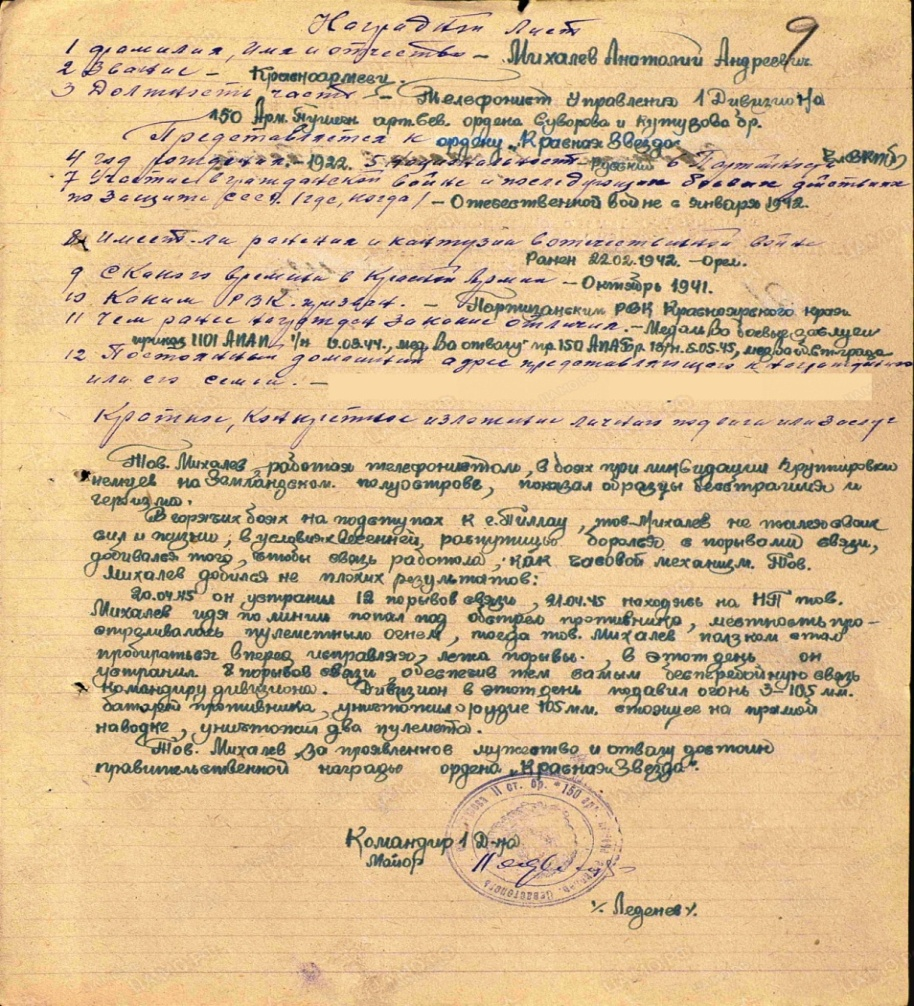 9
Наградной Лист
1 Фамилия, Имя и отчество – Михалев Анатолий Андреевич
2 Звание – Красноармеец.
3 Должность, часть – Телефонист Управления 1 Дивизиона
150 Арм. Пушеч арт. Сев. ордена Суворова и Кутузова бр.
Представляется к ордену „Красная Звезда"
4 год рождения – 1922. 5 национальность Русский 6 Партийность ВКП(б)
7 Участие в гражданской войне и последующих боевых действиях
по защите СССР (где, когда) – Отечественной войне с января 1942.
8 Имеет ли ранения и контузии в отечественной войне
Ранен 22.02.1942. – Орел.
9 С какого времени в Красной Армии – Октябрь 1941.
10 Каким РВК призван. – Партизанским РВК Красноярского края
11 Чем ранее награжден за какие отличия. – Медаль За боевые заслуги
приказ 1101 АПАП. /н .03.44., мед. За отвагу" пр. 150 АПАБр /н. .05.45, мед.
12 Постоянный домашний адрес представляемого к награждению
или его семьи. –
Краткое, Конкретное изложение личного подвига или заслуг
Тов. Михалев, работая телефонистом, в боях при ликвидации группировки
немцев на Земландском полуострове, показал образцы бесстрашия и
героизма.
В горячих боях на подступах к г. Пиллау, тов. Михалев не жалея своих
сил и жизни, в условиях весенней распутицы боролся с порывами связи,
добивался того, чтобы связь работала, как часовой механизм. Тов.
Михалев добился не плохих результатов:
20.04.45 он устранил 12 порывов связи, 21.04.45 находясь на НП тов.
Михалев идя по линии попал под обстрел противника, местность про-
стреливалась пулеметным огнем, тогда тов. Михалев ползком стал
пробираться вперед исправляя, лежа порывы. , в этот день он
устранил 8 порывов связи, обеспечив тем самым бесперебойную связь
командиру дивизиона. Дивизион в этот день подавил огонь 3-105 мм.
батарей противника, уничтожил орудие 105 мм. стоящее на прямой
наводке, уничтожил два пулемета.
Тов. Михалев, за проявленное мужество и отвагу достоин
правительственной награды ордена „Красная Звезда".
Командир 1 Д-на
Майор
/. Леденев /.